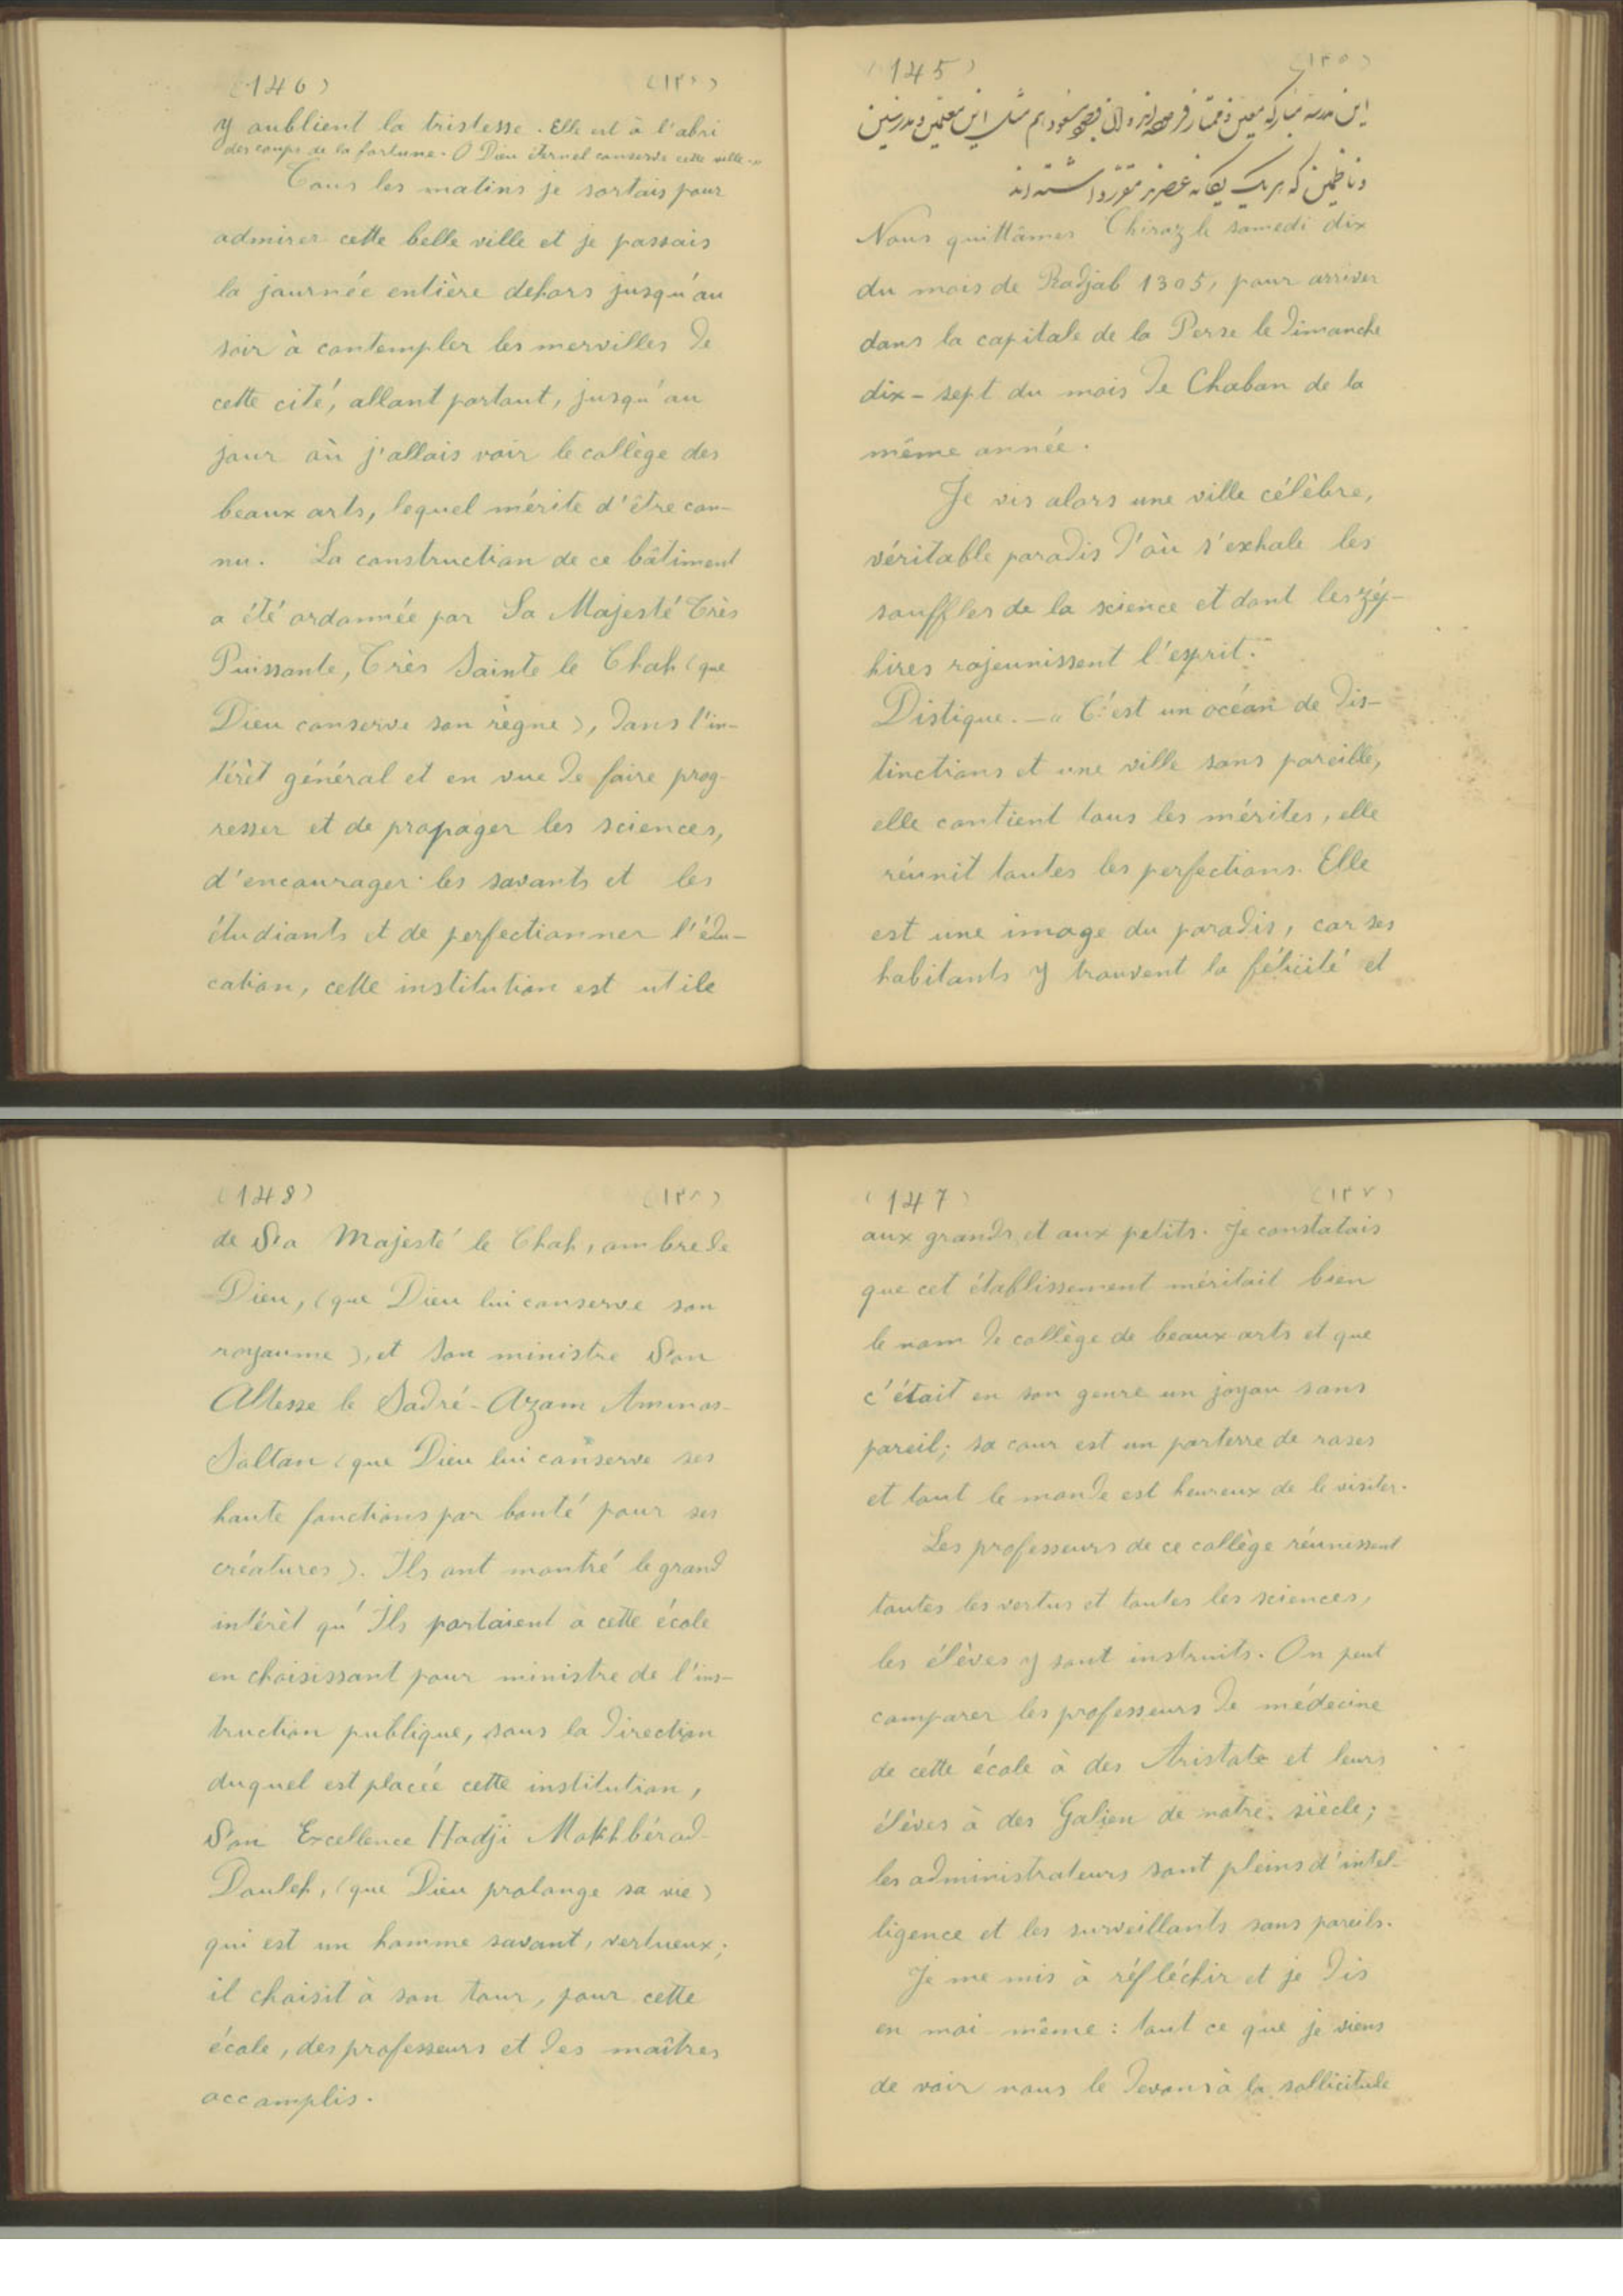 (145) (١٤٥)
این مدرسه مبارکه معین و
و ناظمین که هر یک یگانه عصرند مقرر داشته اند
Nous quittâmes Chiraz le samedi dix
du mois de Radjab 1305, pour arriver
dans la capitale de la Perse le dimanche
dix-sept du mois de Chaban de la
même année.
Je vis alors une ville célèbre,
véritable paradis d'où s'exhale les
souffles de la science et dont les zép-
hires rajeunissent l'esprit.
Distique. — « C'est un océan de dis-
tinctions et une ville sans pareille,
elle contient tous les mérites, elle
réunit toutes les perfections. Elle
est une image du paradis, car ses
habitants y trouvent la félicité et
(146) (١٤٦)
y oublient la tristesse. Elle est à l'abri
des coups de la fortune. O Dieu éternel conserve cette ville. »
Tous les matins je sortais pour
admirer cette belle ville et je passais
la journée entière dehors jusqu'au
soir à contempler les mervilles de
cette cité, allant partout, jusqu'au
jour où j'allais voir le collège des
beaux arts, lequel mérite d'être con-
nu. La construction de ce bâtiment
a été ordonnée par Sa Majesté Très
Puissante, Très Sainte le Chah (que
Dieu conserve son règne), dans l'in-
térêt général et en vue de faire prog-
resser et de propager les sciences,
d'encourager les savants et les
étudiants et de perfectionner l'édu-
cation, cette institution est utile
(147) (١٤٧)
aux grands et aux petits. Je constatais
que cet établissement méritait bien
le nom de collège de beaux arts et que
c'était en son genre un joyau sans
pareil; sa cour est un parterre de roses
et tout le monde est heureux de le visiter.
Les professeurs de ce collège réunissent
toutes les vertus et toutes les sciences,
les élèves y sont instruits. On peut
comparer les professeurs de médecine
de cette école à des Aristote et leurs
élèves à des Galien de notre siècle;
les administrateurs sont pleins d'intel-
ligence et les surveillants sans pareils.
Je me mis à réfléchir et je dis
en moi-même : tout ce que je viens
de voir nous le devons à la sollicitude
(148) (١٤٨)
de Sa Majesté le Chah, ombre de
Dieu, (que Dieu lui conserve son
royaume), et son ministre Son
Altesse le Sadré-Azam Aminos-
Soltan (que Dieu lui conserve ses
haute fonctions par bonté pour ses
créatures). Ils ont montré le grand
intérêt qu'Ils portaient à cette école
en choisissant pour ministre de l'ins-
truction publique, sous la direction
duquel est placée cette institution,
Son Excellence Hadji Mokhbérod-
Douleh, (que Dieu prolonge sa vie)
qui est un homme savant, vertueux;
il choisit à son tour, pour cette
école, des professeurs et des maîtres
accomplis.